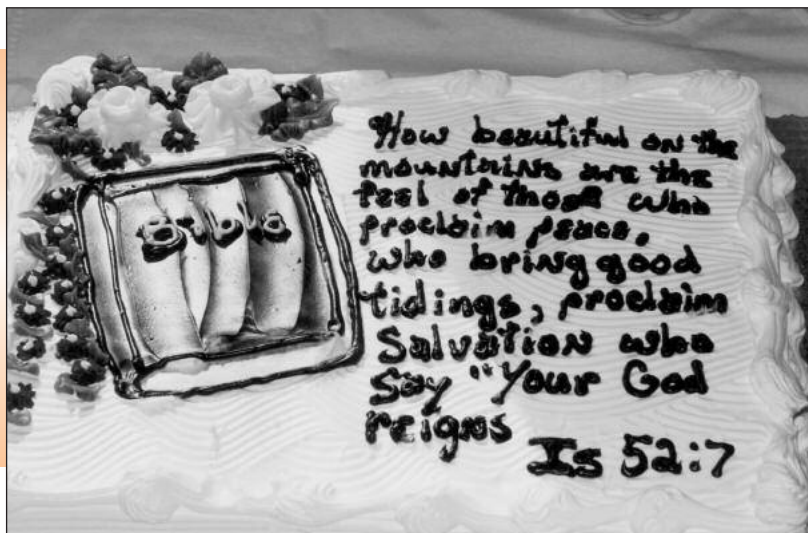 Bible
How beautiful on the
mountains are the
feel of those who
proclaim peace,
who bring good
tidings, proclaim
Salvation who
say "Your God
reigns
Is 52:7